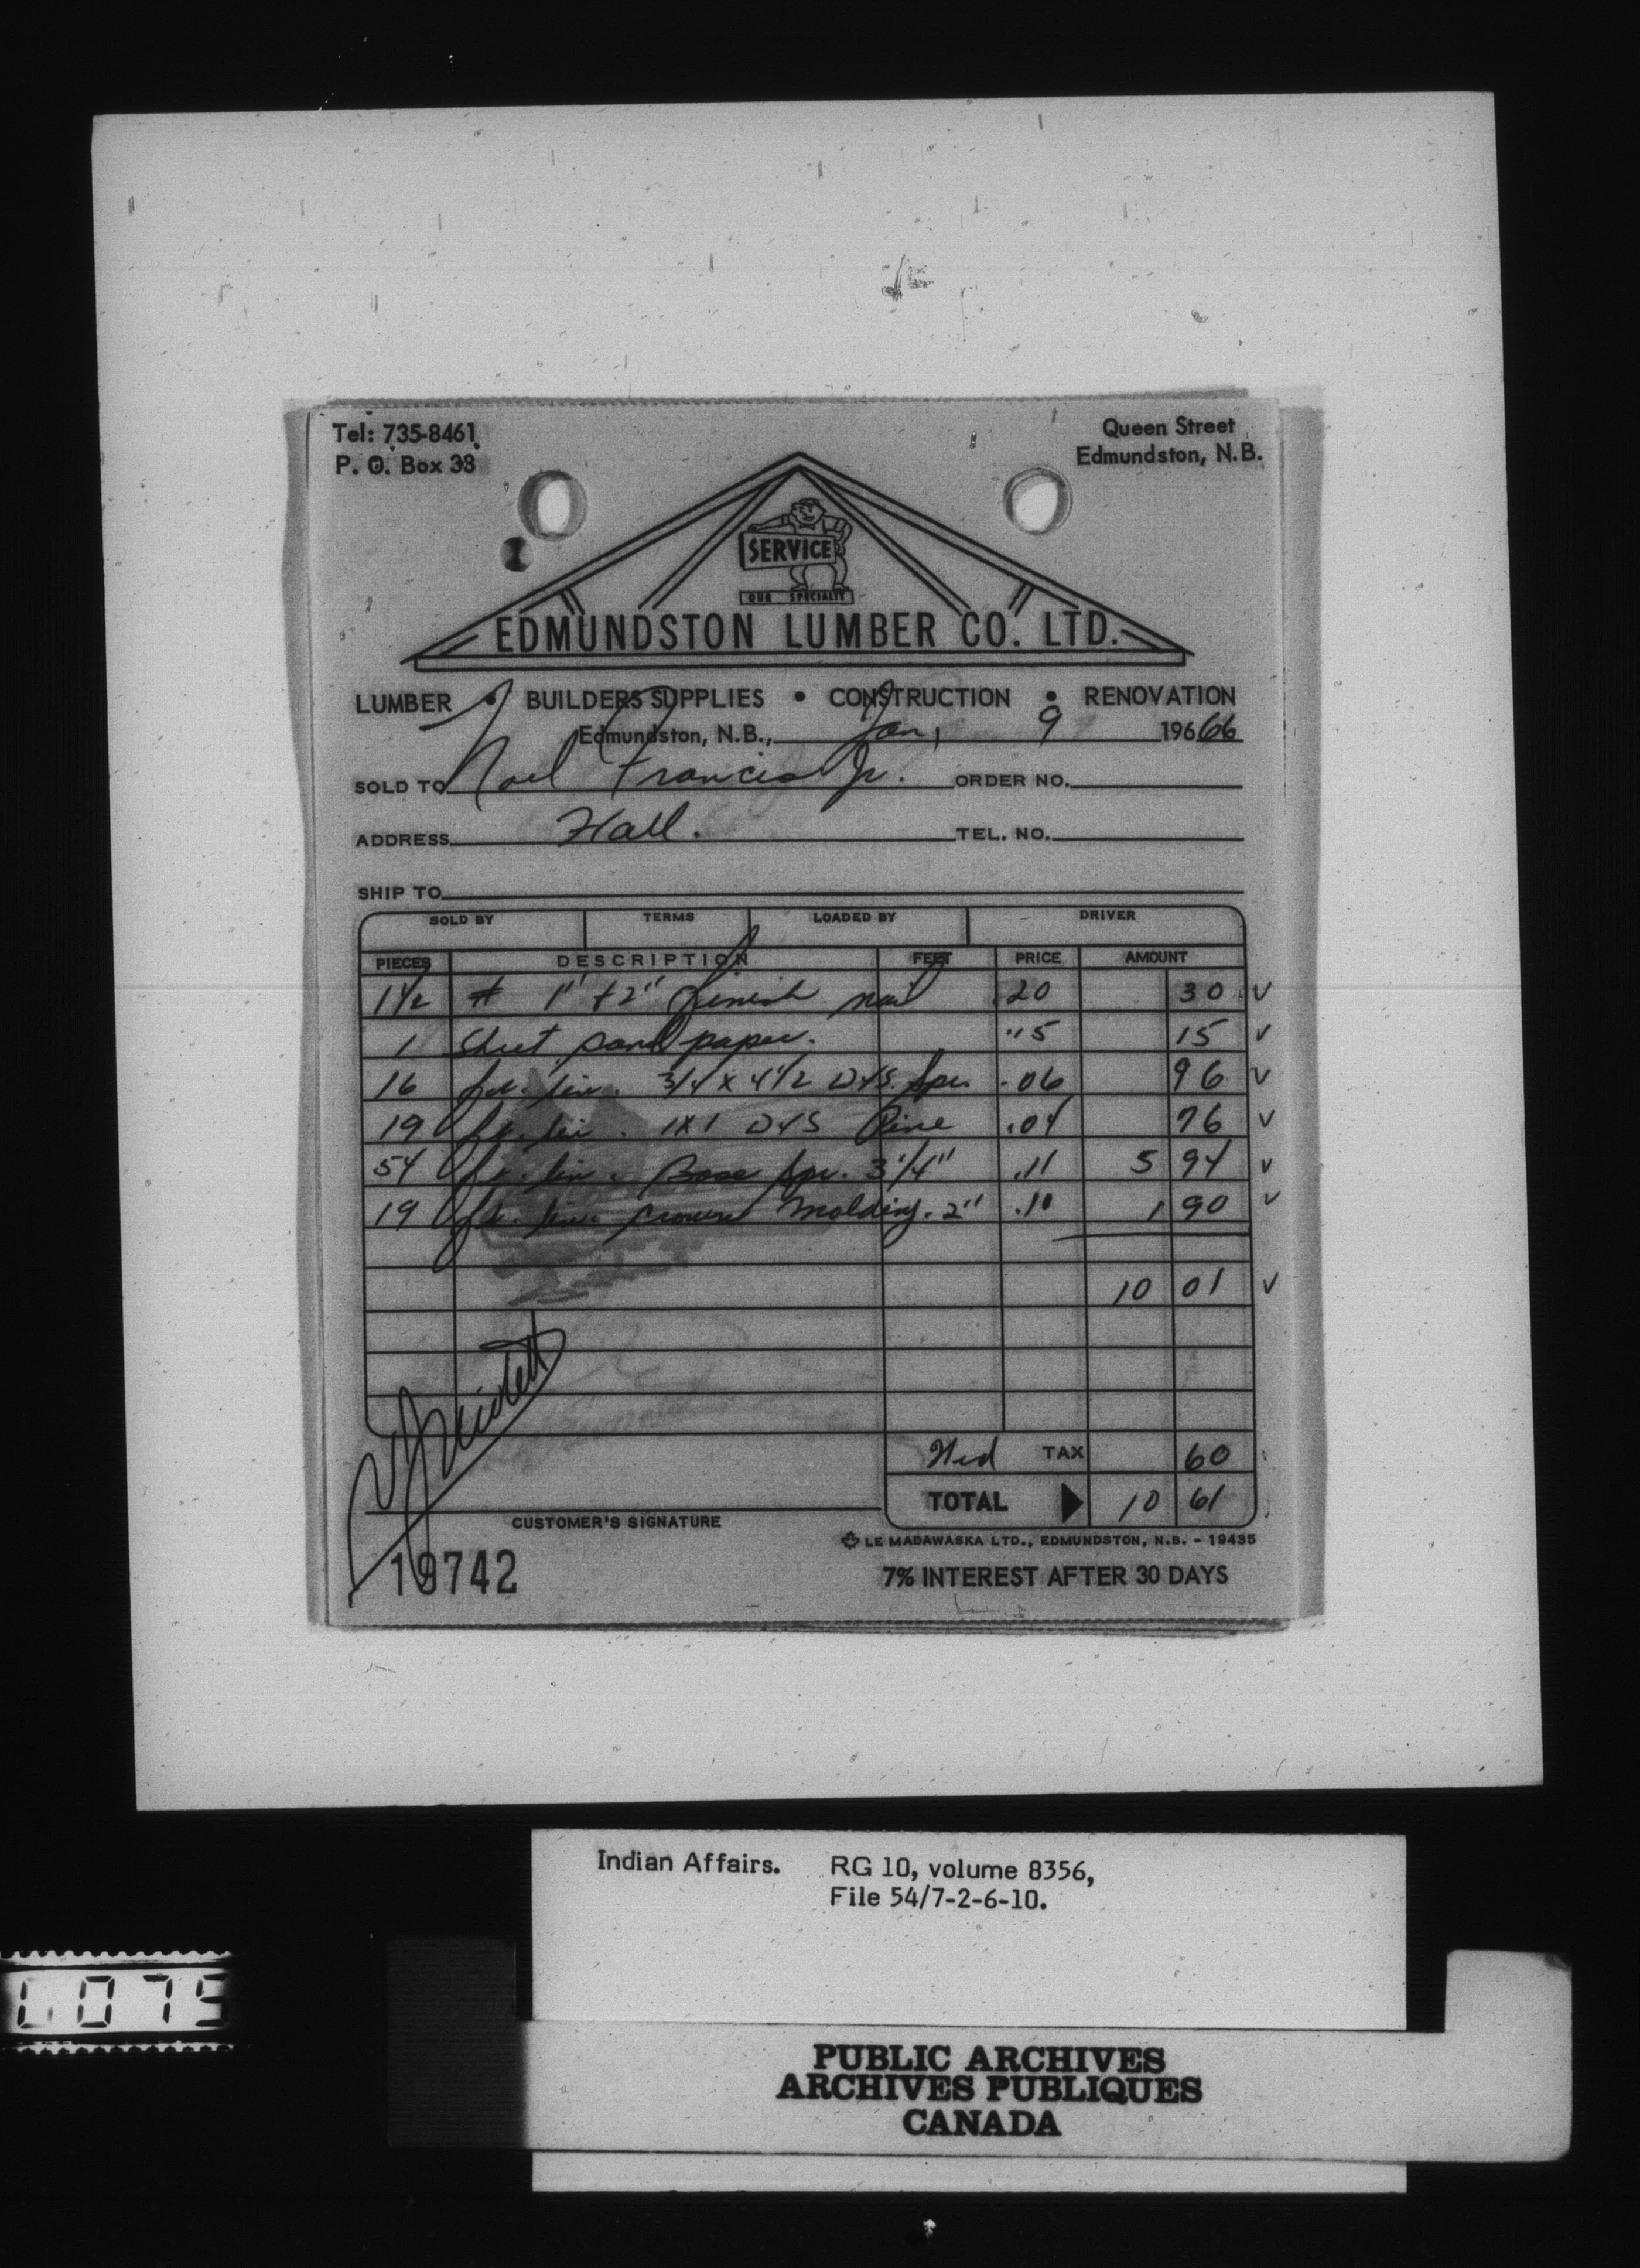 Tel: 735-8461
P. O. Box 38
Queen Street
Edmundston, N.B.
SERVICE
OUR SPECIALTY
EDMUNDSTON LUMBER CO. LTD.
LUMBER • BUILDERS SUPPLIES • CONSTRUCTION • RENOVATION
Edmundston, N.B., Jan, 9 19666
SOLD TO Noel Francis Jr. ORDER NO.
ADDRESS Hall. TEL. NO.
SHIP TO
SOLD BY TERMS LOADED BY DRIVER
PIECES DESCRIPTION FEET PRICE AMOUNT
1 1/2 # 1" + 2" finish nail .20 30 v
1 Sheet sand paper. "15 15 v
16 ft. lin. 3/4 x 4 1/2 D4S. Spr. .06 96 v
19 ft. lin. 1x1 D4S Pine .04 76 v
54 ft. lin. Base Spr. 3 1/4" .11 5 94 v
19 ft. lin. Crown Molding. 2" .10 1 90 v
10 01 v
TAX 60
TOTAL 10 61
CUSTOMER'S SIGNATURE
LE MADAWASKA LTD., EDMUNDSTON, N.B. - 19435
19742
7% INTEREST AFTER 30 DAYS
Indian Affairs. RG 10, volume 8356,
File 54/7-2-6-10.
0075
PUBLIC ARCHIVES
ARCHIVES PUBLIQUES
CANADA